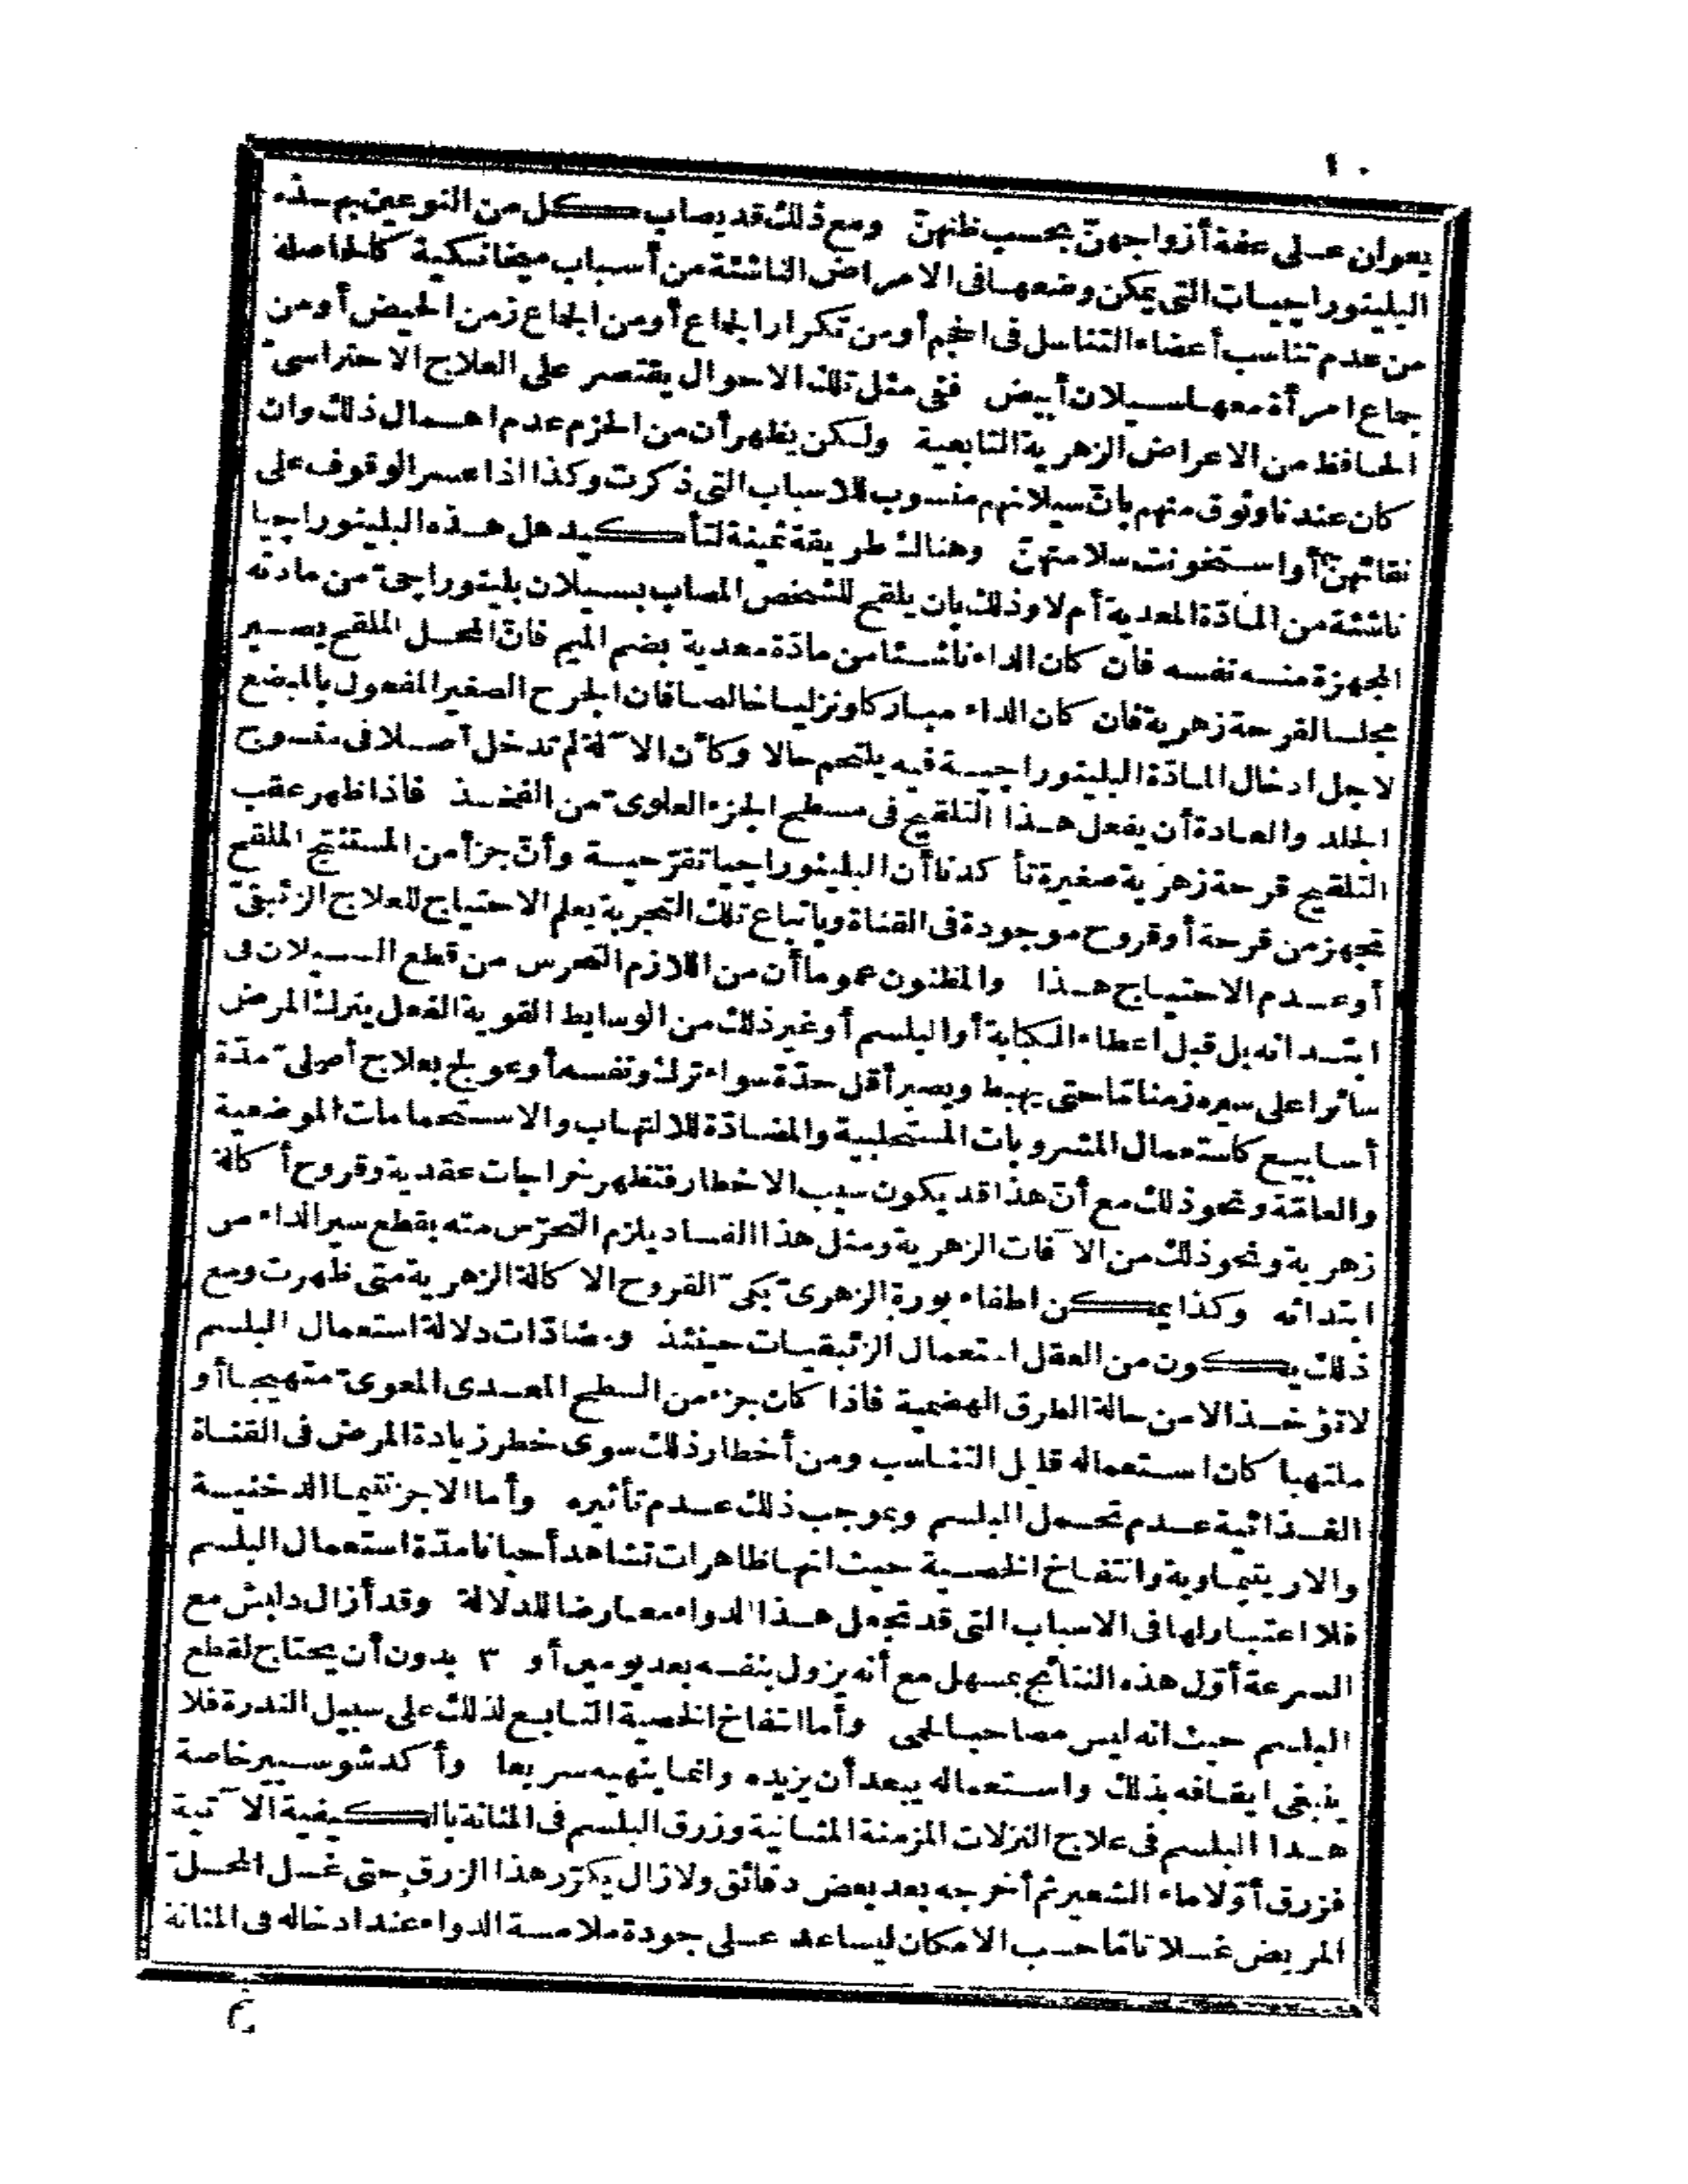 ١٠
يعولن على عفة أزواجهنّ بحسب ظنهنّ ومع ذلك قد يصاب كل من النوعين بهذه
البلينوراجيات التى يمكن وضعها فى الامراض الناشئة من أسباب ميخانيكية كالحاصلة
من عدم تناسب أعضاء التناسل فى الحجم أو من تكرار الجماع أو من الجماع زمن الحيض أو من
جماع امرأة معها سيلان أبيض ففى مثل تلك الاحوال يقتصر على العلاج الاحتراسىّ
الحافظ من الاعراض الزهرية التابعية ولكن يظهر أن من الحزم عدم اهمال ذلك وان
كان عندنا وثوق منهم بانّ سيلانهم منسوب للاسباب التى ذكرت وكذا اذا عسر الوقوف على
نقائهنّ أو استخونت سلامتهنّ وهنالك طريقة ثمينة لتأكيد هل هذه البلينوراجيا
ناشئة من المادّة المعدية أم لا وذلك بان يلقح للشخص المصاب بسيلان بلينوراجىّ من مادته
المجهزة منه نفسه فان كان الداء ناشئا من مادّة معدية بضم الميم فانّ المحل الملقح يصير
مجلسا لقرحة زهرية فان كان الداء مباركا ونزليا خالصا فان الجرح الصغير المفعول بالمبضع
لاجل ادخال المادّة البلينوراجيية فيه يلتحم حالا وكأن الآلة لم تدخل أصلا فى منسوج
الجلد والعادة أن يفعل هذا التلقيح فى سطح الجزء العلوىّ من الفخذ فاذا ظهر عقب
التلقيح قرحة زهرية صغيرة تأكدنا أن البلينوراجيا تقرّحية وأنّ جزأ من المستنتج الملقح
تجهز من قرحة أو قروح موجودة فى القناة وباتباع تلك التجربة يعلم الاحتياج للعلاج الزئبقىّ
أو عدم الاحتياج هذا والمظنون عموما أن من اللازم التحرس من قطع السيلان فى
ابتدائه بل قبل اعطاء الكبابة أو البلسم أو غير ذلك من الوسايط القوية الفعل يترك المرض
سائرا على سيره زمنا مّا حتى يهبط ويصير أقل حدّة سواء ترك ونفسه أو عولج بعلاج أصولىّ مدّة
أسابيع كاستعمال المشروبات المستحلبية والمضادّة للالتهاب والاستحمامات الموضعية
والعامّة ونحو ذلك مع أنّ هذا قد يكون سبب الاخطار فتظهر خراجات عقدية وقروح أكالة
زهرية ونحو ذلك من الآفات الزهرية ومثل هذا الفساد يلزم التحرّس منه بقطع سير الداء من
ابتدائه وكذا يمكن اطفاء بورة الزهرىّ بكىّ القروح الاكالة الزهرية متى ظهرت ومع
ذلك يكون من العقل استعمال الزئبقيات حينئذ ومضادّات دلالة استعمال البلسم
لا تؤخذ الا من حالة الطرق الهضمية فاذا كان جزء من السطح المعدى المعوىّ متهيجا أو
ملتهبا كان استعماله قليل التناسب ومن أخطار ذلك سوى خطر زيادة المرض فى القناة
الغذائية عدم تحمل البلسم وبموجب ذلك عدم تأثيره وأما الاجزنتيما الدخنية
والاريتيماوية وانتفاخ الخصية حيث انها ظاهرات تشاهد أحيانا مدّة استعمال البلسم
فلا اعتبار لها فى الاسباب التى قد تجعل هذا الدواء معارضا للدلالة وقد أزال دلبش مع
السرعة أوّل هذه النتائج بمسهل مع أنه يزول بنفسه بعد يومين أو ٣ بدون أن يحتاج لقطع
البلسم حيث انه ليس مصاحبا لحمى وأما انتفاخ الخصية التابع لذلك على سبيل الندرة فلا
ينبغى ايقافه بذلك واستعماله يبعد أن يزيده وانما ينهيه سريعا وأكد شوسير خاصة
هذا البلسم فى علاج النزلات المزمنة المثانية وزرق البلسم فى المثانة بالكيفية الآتية
فزرق أوّلا ماء الشعير ثم أخرجه بعد بعض دقائق ولا زال يكرّر هذا الزرق حتى غسل المحلّ
المريض غسلا تامّا حسب الامكان ليساعد على جودة ملامسة الدواء عند ادخاله فى المثانة